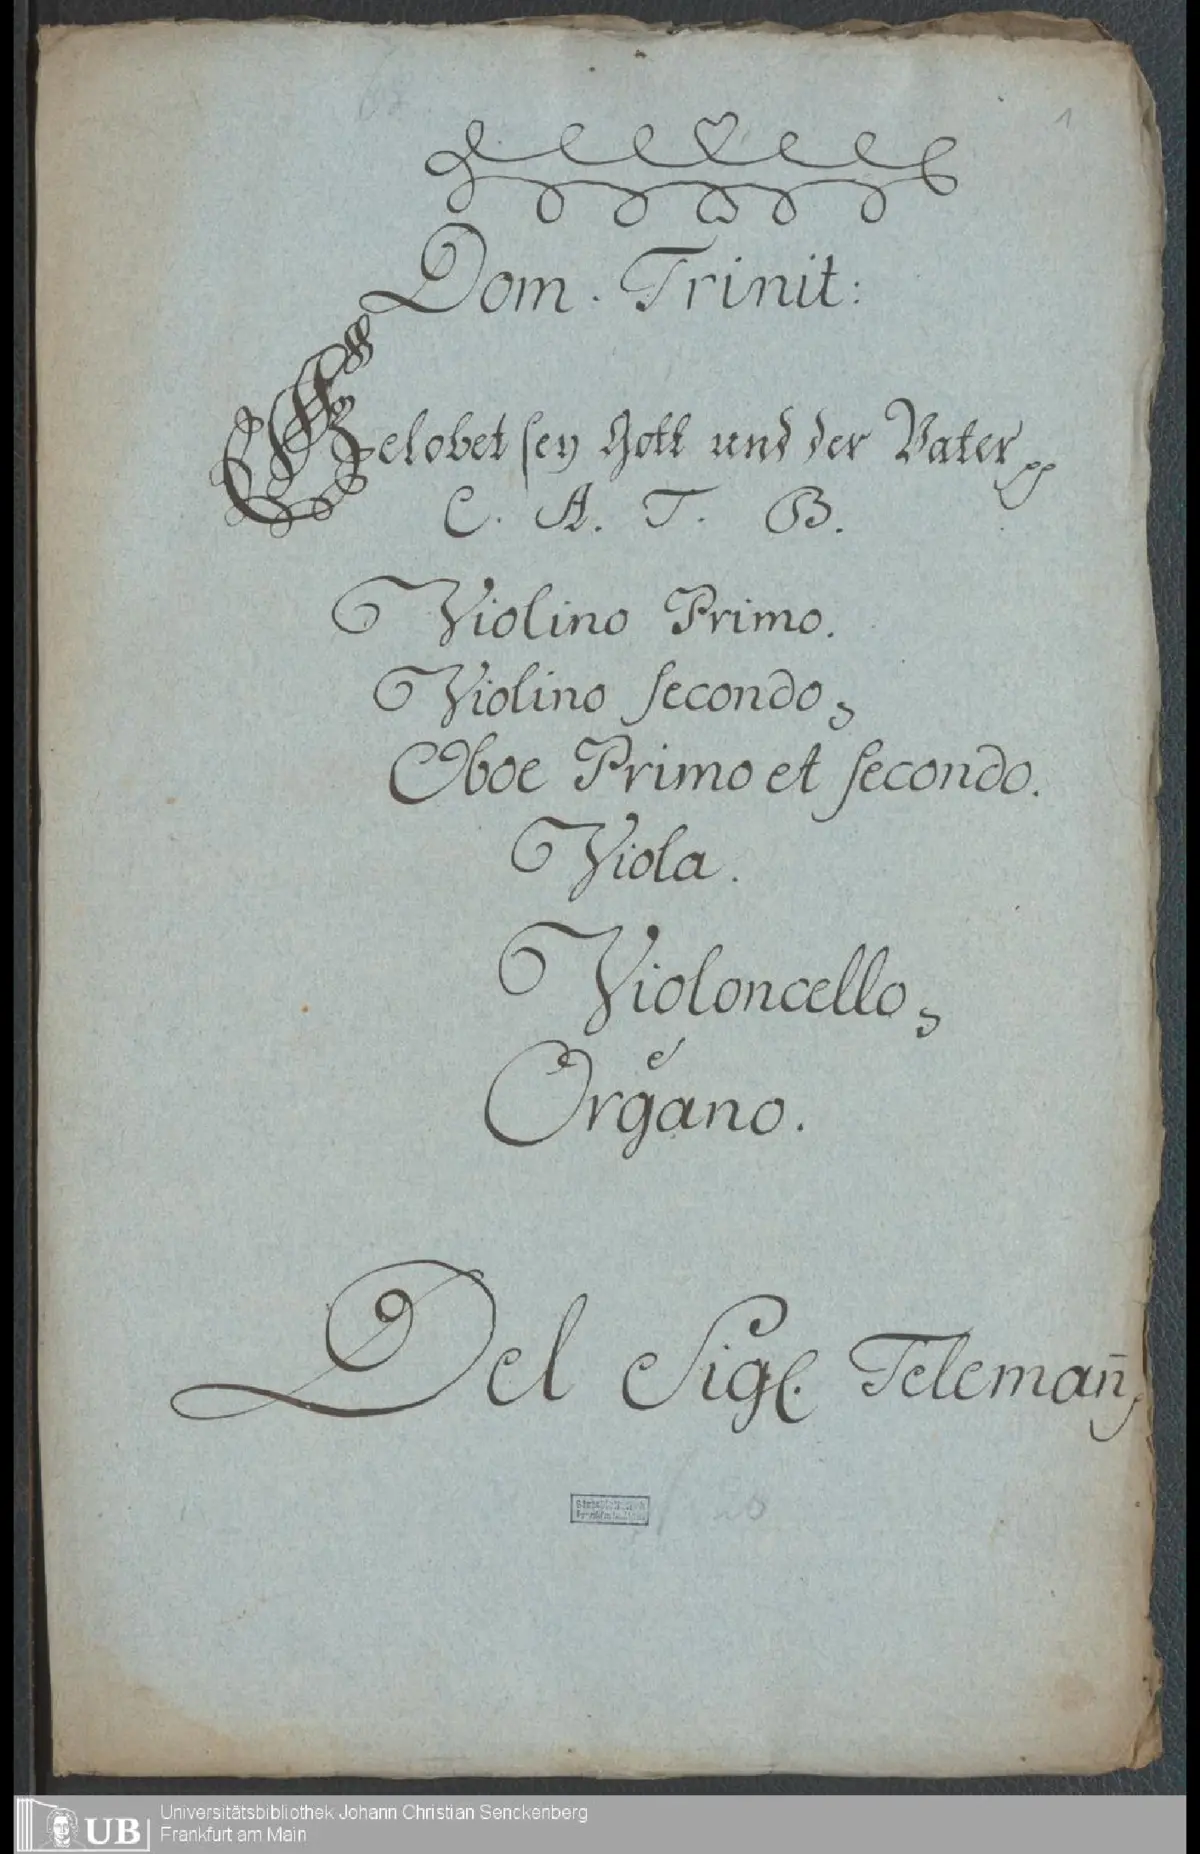 1
Dom. Trinit:
Gelobet sey Gott und der Vater
C. A. T. B.
Violino Primo.
Violino Secondo
Oboe Primo et Secondo.
Viola.
Violoncello
e
Organo.
Del Sigr. Telemañ
20
UB Universitätsbibliothek Johann Christian Senckenberg
Frankfurt am Main